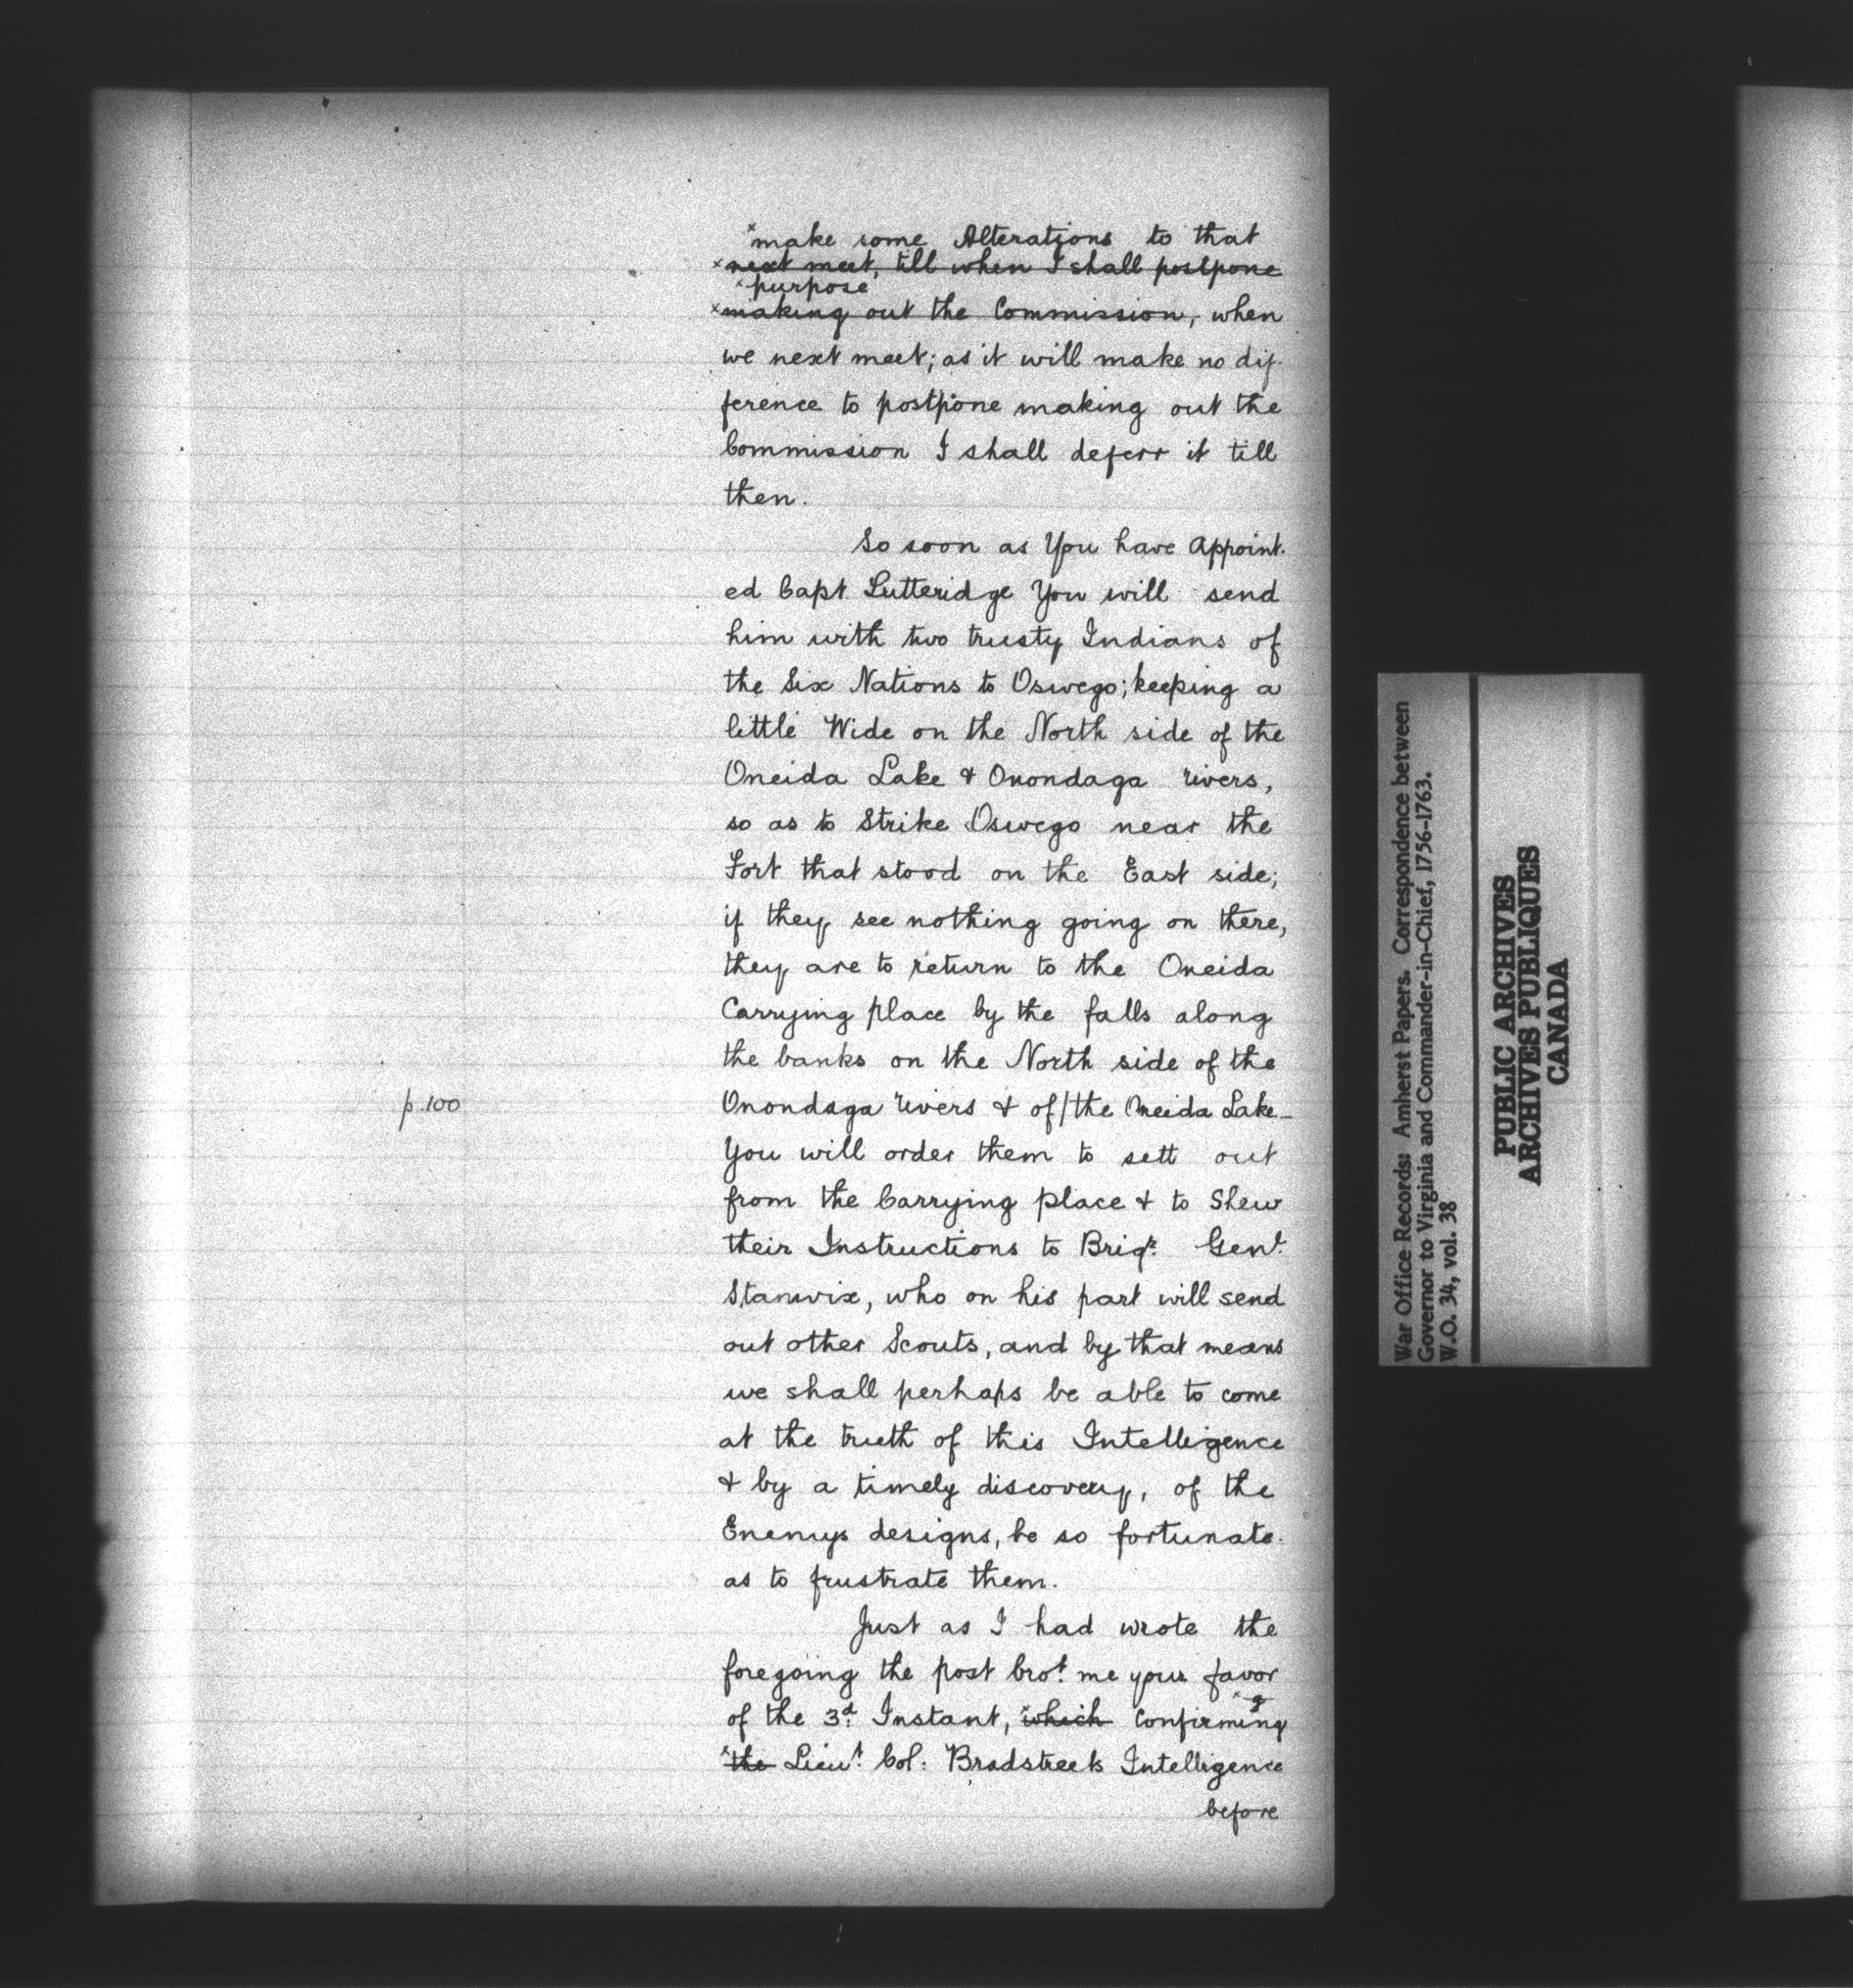 ˣmake some Alterations to that
ˣnext meet, till when I shall postpone
ˣpurpose
ˣmaking out the Commission, when
we next meet; as it will make no dif-
ference to postpone making out the
Commission I shall deferr it till
then.
So soon as You have Appoint-
ed Capt Lutteridge You will send
him with two trusty Indians of
the Six Nations to Oswego; keeping a
little Wide on the North side of the
Oneida Lake & Onondaga rivers,
so as to Strike Oswego near the
Fort that stood on the East side;
if they see nothing going on there,
they are to return to the Oneida
Carrying place by the falls along
the banks on the North side of the
p.100
Onondaga rivers & of/the Oneida Lake—
You will order them to sett out
from the Carrying place & to Shew
their Instructions to Brigʳ. Genˡ.
Stanwix, who on his part will send
out other Scouts, and by that means
we shall perhaps be able to come
at the trueth of this Intelligence
& by a timely discovery, of the
Enemys designs, be so fortunate
as to frustrate them.
Just as I had wrote the
foregoing the post broᵗ. me your favor
of the 3ᵈ. Instant, ˣwhich Confirming
ˣthe Lieuᵗ. Col: Bradstreets Intelligence
before
War Office Records: Amherst Papers. Correspondence between
Governor to Virginia and Commander-in-Chief, 1756-1763.
W.O. 34, vol. 38
PUBLIC ARCHIVES
ARCHIVES PUBLIQUES
CANADA